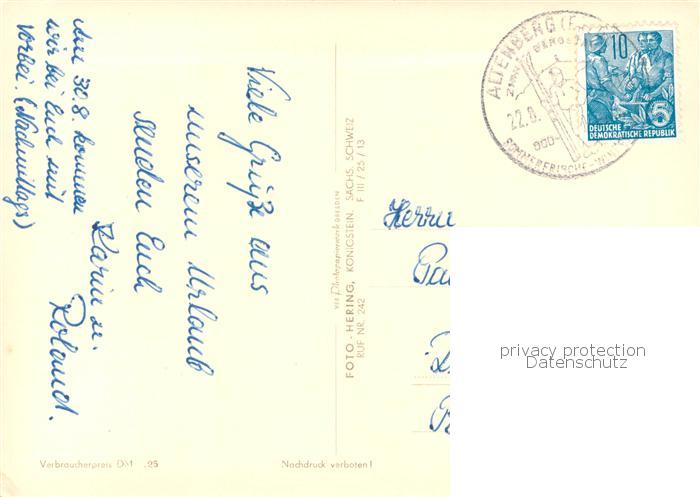 Viele Grüße aus
unserem Urlaub
senden Euch
Karin u.
Roland.
Am 30.8. kommen
wir bei Euch mit
vorbei. (Nachmittags)
VEB Photopapierwerk DRESDEN
FOTO-HERING, KÖNIGSTEIN, SÄCHS. SCHWEIZ
RUF NR. 242 F III / 25 / 13
ALTENBERG
22.8.
SOMMERFRISCHE
10
5
DEUTSCHE
DEMOKRATISCHE REPUBLIK
Herrn
privacy protection
Datenschutz
Verbraucherpreis DM .25
Nachdruck verboten!